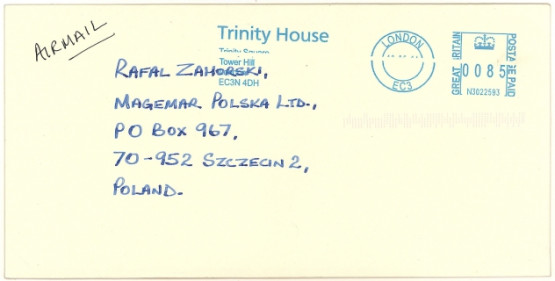 AIRMAIL
Trinity House
Trinity Square
Tower Hill
EC3N 4DH
LONDON
EC3
GREAT BRITAIN
POSTAGE PAID
0085
N3022593
RAFAL ZAHORSKI,
MAGEMAR POLSKA LTD.,
PO BOX 967,
70-952 SZCZECIN 2,
POLAND.